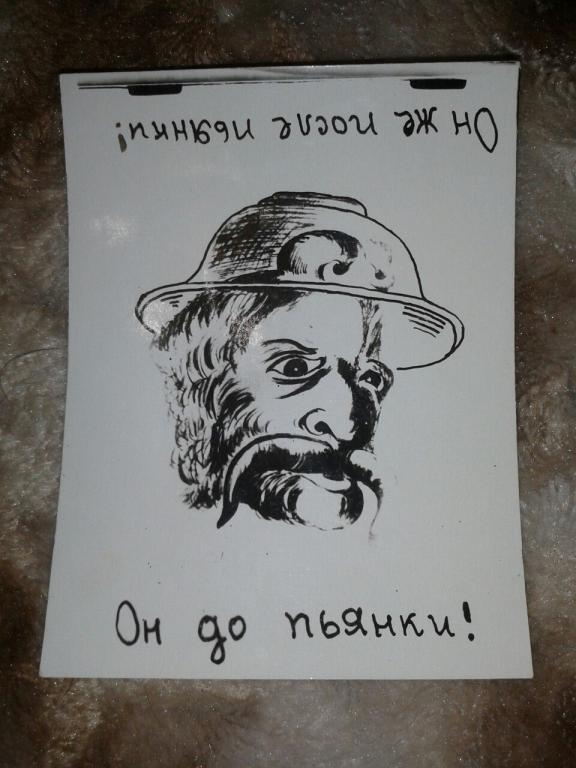 Он же после пьянки!
Он до пьянки!